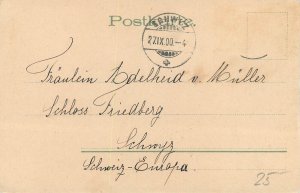 Postkarte
SCHWYZ
27.IX.00.–4
Fräulein Adelheid v. Müller
Schloss Friedberg
Schwyz
Schweiz-Europa.
25–